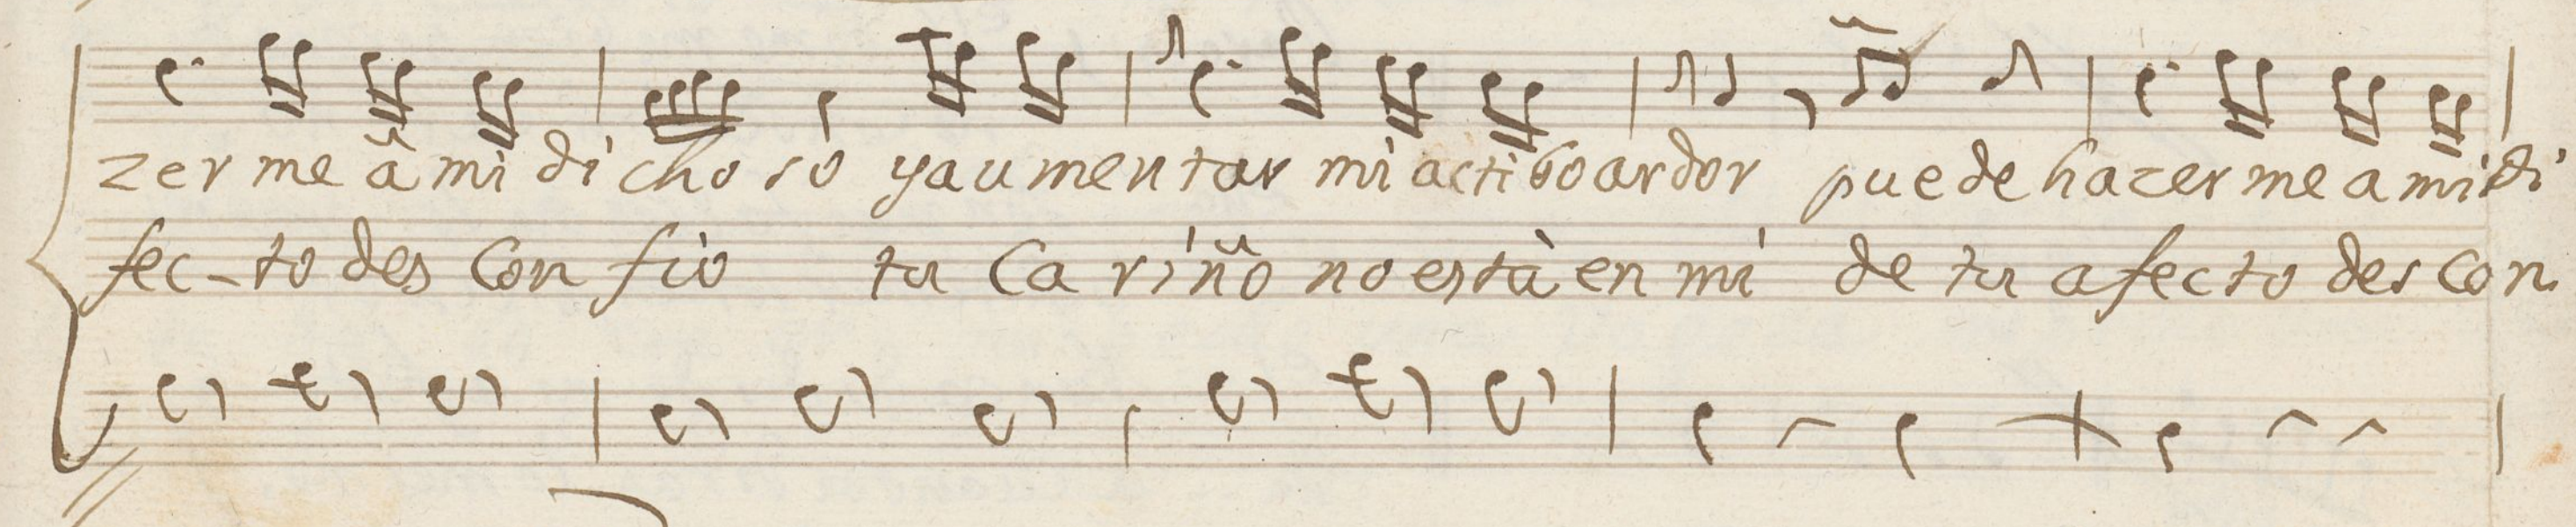 zer me â mi di cho so ya u men tar mi acti bo ar dor pue de ha zer me a mi di
fec-to des Con fio tu Ca riño no està en mi de tu a fec to des con